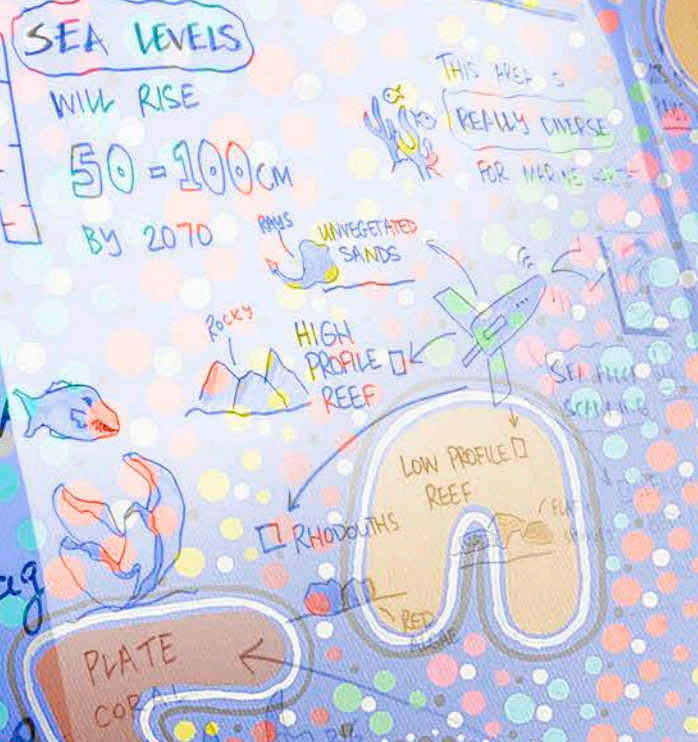 SEA LEVELS
WILL RISE
50-100CM
BY 2070
THIS AREA IS
REALLY DIVERSE
FOR MARINE
RAYS
UNVEGETATED
SANDS
ROCKY
HIGH
PROFILE
REEF
SEA FLOOR
SCANNING
LOW PROFILE
REEF
RHODOLITHS
RED
ALGAE
PLATE
CORAL